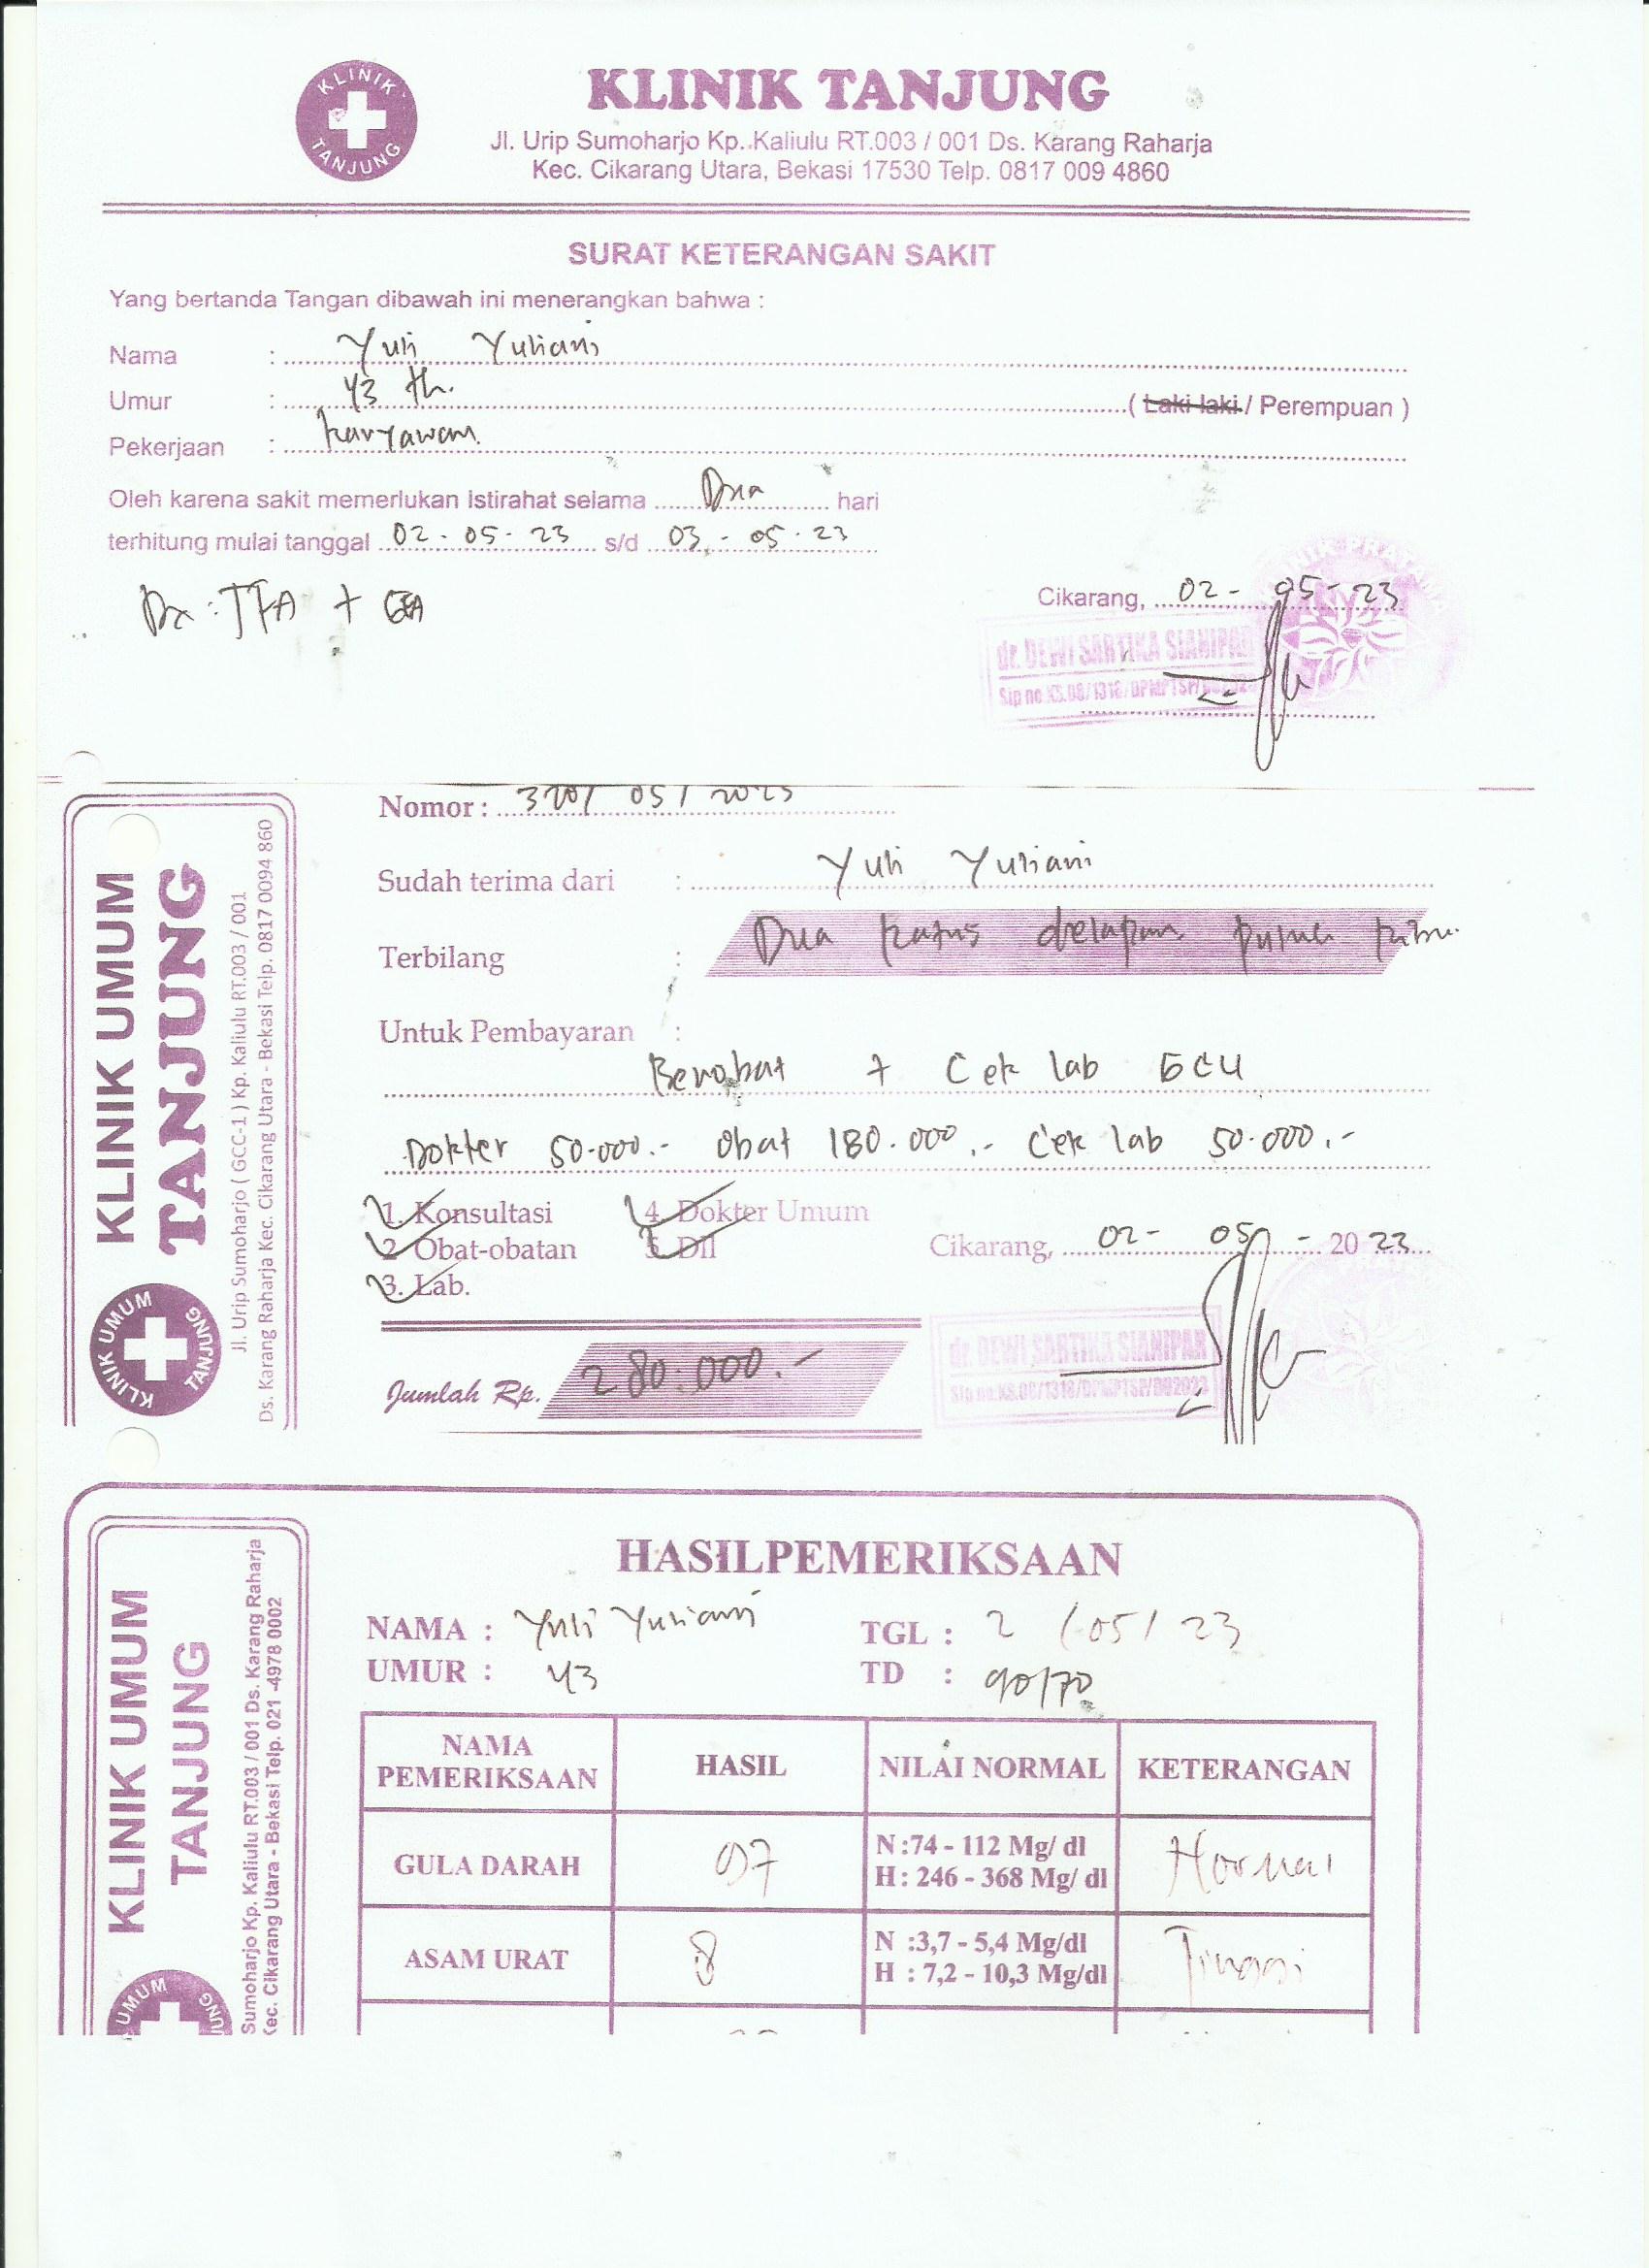 KLINIK TANJUNG
KLINIK TANJUNG
Jl. Urip Sumoharjo Kp. Kaliulu RT.003 / 001 Ds. Karang Raharja
Kec. Cikarang Utara, Bekasi 17530 Telp. 0817 009 4860
SURAT KETERANGAN SAKIT
Yang bertanda Tangan dibawah ini menerangkan bahwa :
Nama : Yuli Yuliani
Umur : 43 th. ( Laki-laki / Perempuan )
Pekerjaan : karyawan
Oleh karena sakit memerlukan istirahat selama Dua hari
terhitung mulai tanggal 02-05-23 s/d 03-05-23
Cikarang, 02-05-23
Dx : TFA + GEA
dr. DEWI SARTIKA SIANIPAR
KLINIK UMUM
TANJUNG
Jl. Urip Sumoharjo ( GCC-1 ) Kp. Kaliulu RT.003 / 001
Ds. Karang Raharja Kec. Cikarang Utara - Bekasi Telp. 0817 0094 860
KLINIK UMUM TANJUNG
Nomor : 320/ 05/ 2023
Sudah terima dari : Yuli Yuliani
Terbilang : Dua Ratus delapan puluh ribu.
Untuk Pembayaran :
Berobat + Cek lab GCU
Dokter 50.000.- Obat 180.000.- Cek lab 50.000.-
1. Konsultasi 4. Dokter Umum
2 Obat-obatan 5. Dll
3. Lab.
Cikarang, 02-05-2023
Jumlah Rp. 280.000.-
dr. DEWI SARTIKA SIANIPAR
KLINIK UMUM
TANJUNG
Sumoharjo Kp. Kaliulu RT.003 / 001 Ds. Karang Raharja
Kec. Cikarang Utara - Bekasi Telp. 021 -4978 0002
UMUM
HASILPEMERIKSAAN
NAMA : Yuli Yuliani TGL : 2 /05/ 23
UMUR : 43 TD : 90/70
NAMA PEMERIKSAAN HASIL NILAI NORMAL KETERANGAN
GULA DARAH 97 N :74 - 112 Mg/ dl Normal
H : 246 - 368 Mg/ dl
ASAM URAT 8 N :3,7 - 5,4 Mg/dl Tinggi
H : 7,2 - 10,3 Mg/dl